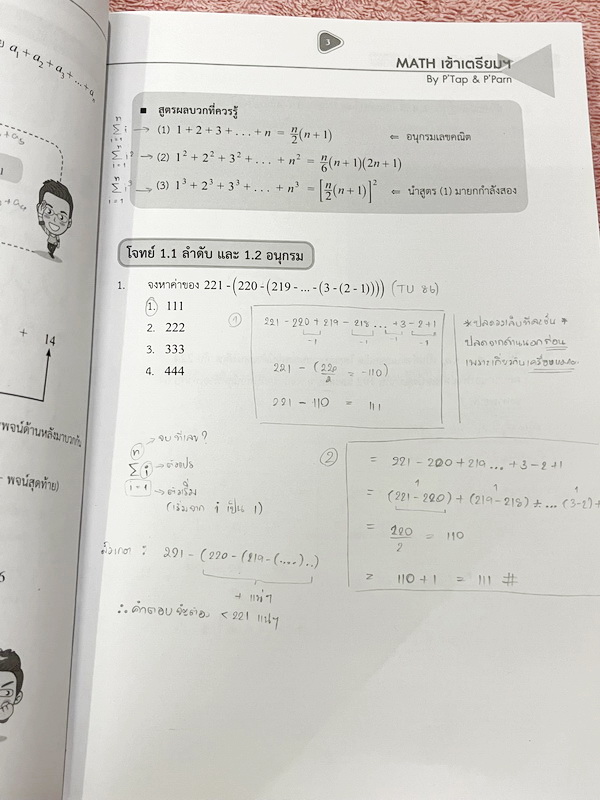 a₁ + a₂ + a₃ + ... + aₙ
3
MATH เข้าเตรียมฯ
By P'Tap & P'Parn
■ สูตรผลบวกที่ควรรู้
n Σ i i=1 → (1) 1 + 2 + 3 + . . . + n = n/2(n + 1) ⇐ อนุกรมเลขคณิต
n Σ i² i=1 → (2) 1² + 2² + 3² + . . . + n² = n/6(n + 1)(2n + 1)
n Σ i³ i=1 → (3) 1³ + 2³ + 3³ + . . . + n³ = [n/2(n + 1)]² ⇐ นำสูตร (1) มายกกำลังสอง
โจทย์ 1.1 ลำดับ และ 1.2 อนุกรม
1. จงหาค่าของ 221 - (220 - (219 - ... - (3 - (2 - 1)))) (TU 86)
1. 111
2. 222
3. 333
4. 444
①
221 - 220 + 219 - 218 ... + 3 - 2 + 1
-1 -1 -1 -1
221 - (220/2 = -110)
221 - 110 = 111
* ปลดวงเล็บทีละชั้น *
ปลดจากด้านนอกก่อน
+ 14
พจน์ด้านหลังมาบวกกัน
- พจน์สุดท้าย)
n → จบที่เลข?
Σ i → ตัวแปร
i = 1 → ตัวเริ่ม
(เริ่มจาก i เป็น 1)
②
= 221 - 220 + 219 ... + 3 - 2 + 1
1 1 1
= (221 - 220) + (219 - 218) + ... (3 - 2) +
= 220/2 = 110
= 110 + 1 = 111 #
สังเกต : 221 - (220 - (219 - (....)..)
+ แน่ๆ
∴ คำตอบจะต้อง < 221 แน่ๆ